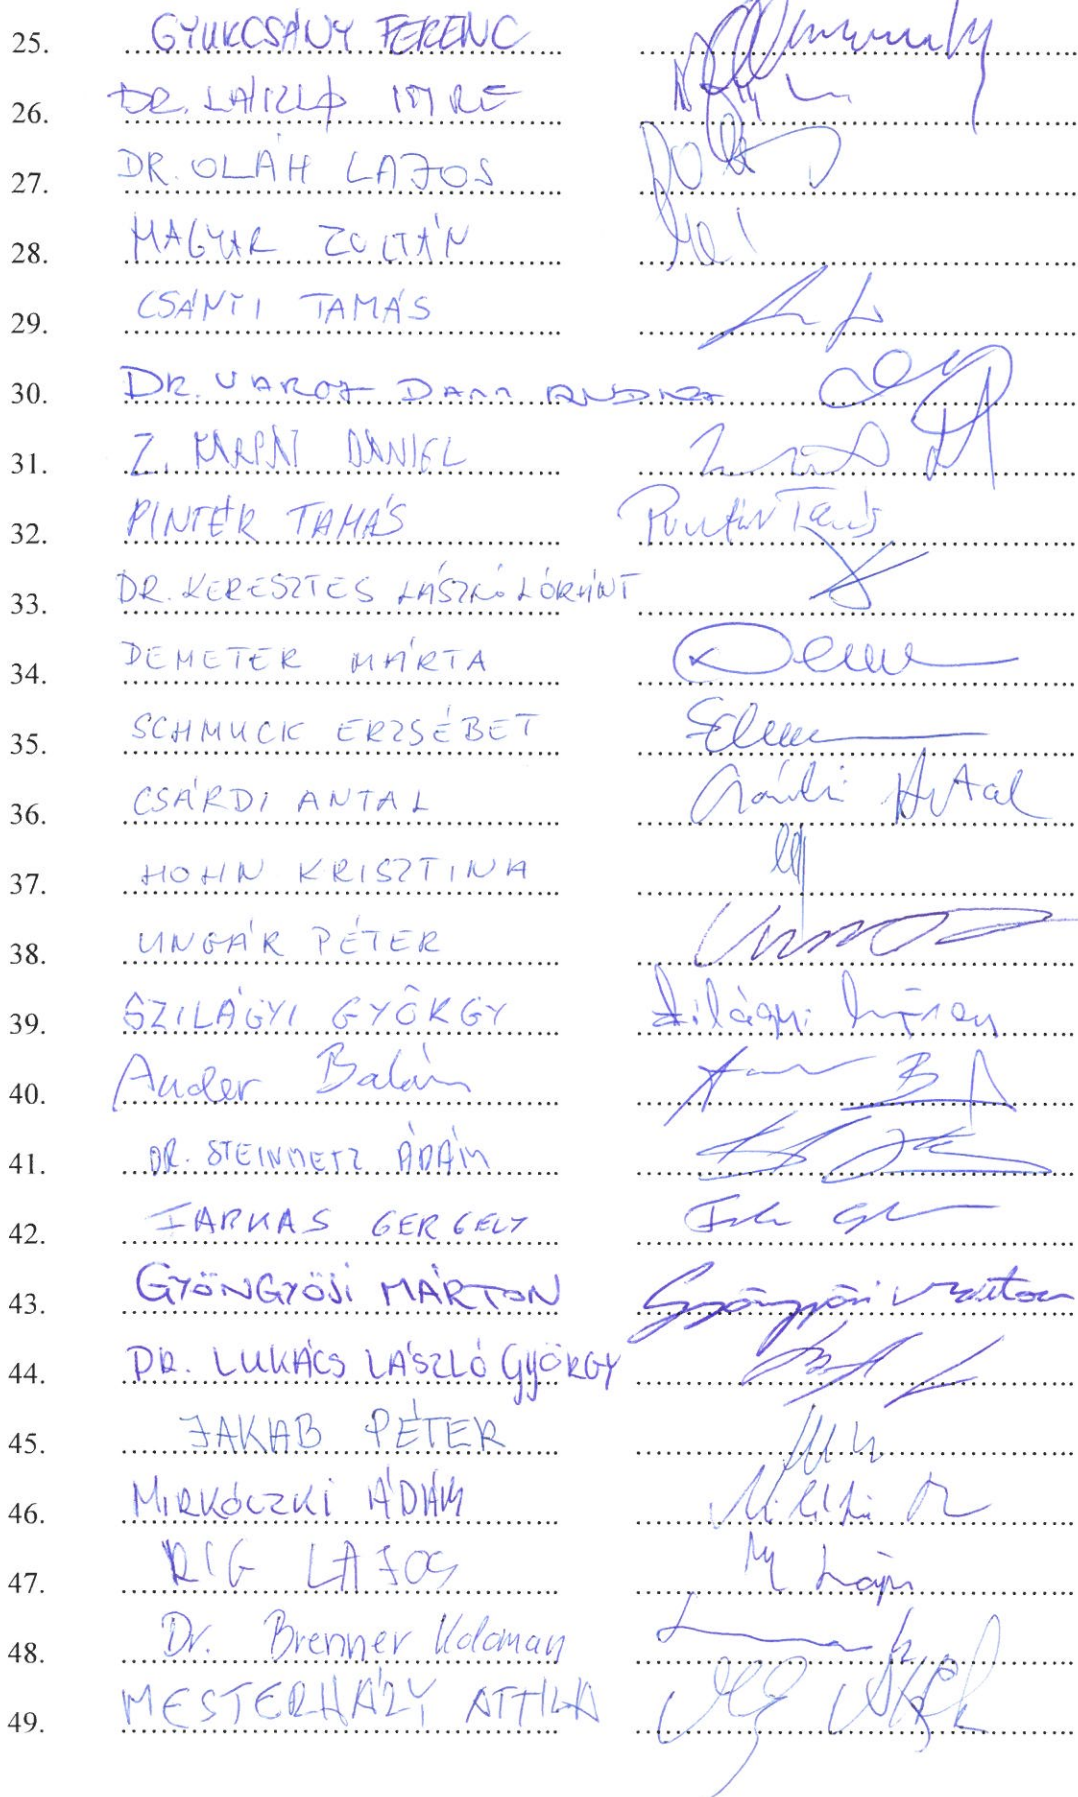 25. GYURCSÁNY FERENC
26. DR. LÁSZLÓ IMRE
27. DR. OLÁH LAJOS
28. MAGYAR ZOLTÁN
29. CSÁNYI TAMÁS
30. DR. VARGA - DAMM ANDREA
31. Z. KÁRPÁT DÁNIEL
32. PINTÉR TAMÁS Pintér Tamás
33. DR. KERESZTES LÁSZLÓ LÓRÁNT
34. DEMETER MÁRTA
35. SCHMUCK ERZSÉBET
36. CSÁRDI ANTAL Csárdi Antal
37. HOHN KRISZTINA
38. UNGÁR PÉTER
39. SZILÁGYI GYÖRGY Szilágyi György
40. Ander Balázs
41. DR. STEINMETZ ÁDÁM
42. FARKAS GERGELY
43. GYÖNGYÖSI MÁRTON Gyöngyösi Márton
44. DR. LUKÁCS LÁSZLÓ GYÖRGY
45. JAKAB PÉTER
46. MIRKÓCZKI ÁDÁM
47. RIG LAJOS
48. Dr. Brenner Koloman
49. MESTERHÁZY ATTILA